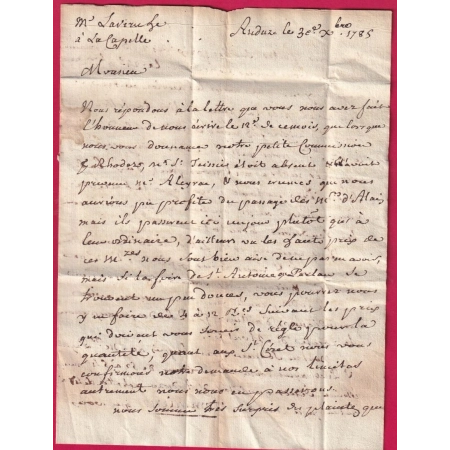 Mr Laveruhe
à La Capelle
Anduze le 30e Xbre 1785
Monsieur
Nous répondons à la lettre que vous nous avez fait
l'honneur de nous écrire le 12e de ce mois, que lorsque
nous vous donnames notre petite Commission
Mr Sr Teissier étoit absent
prevenu Mr Aleyrac, & nous crumes que nous
aurions pu profiter du passage des Mrs d'Alais
mais ils passerent ici un jour plutôt qu'à
leur ordinaire, d'ailleurs vu les hauts prix de
ces nous sout bien aise de ne pas en avoir,
mais si la foire de St Antoine
trouvent un peu douces, vous pourrez nous
y en faire des 4 à 12 suivant les prix
que doivent vous servir de régle pour la
quantité, quant aux St vous
confirmons notre demande, à nos limites
autrement nous nous en passerons.
nous sommes très surpris du plainte que